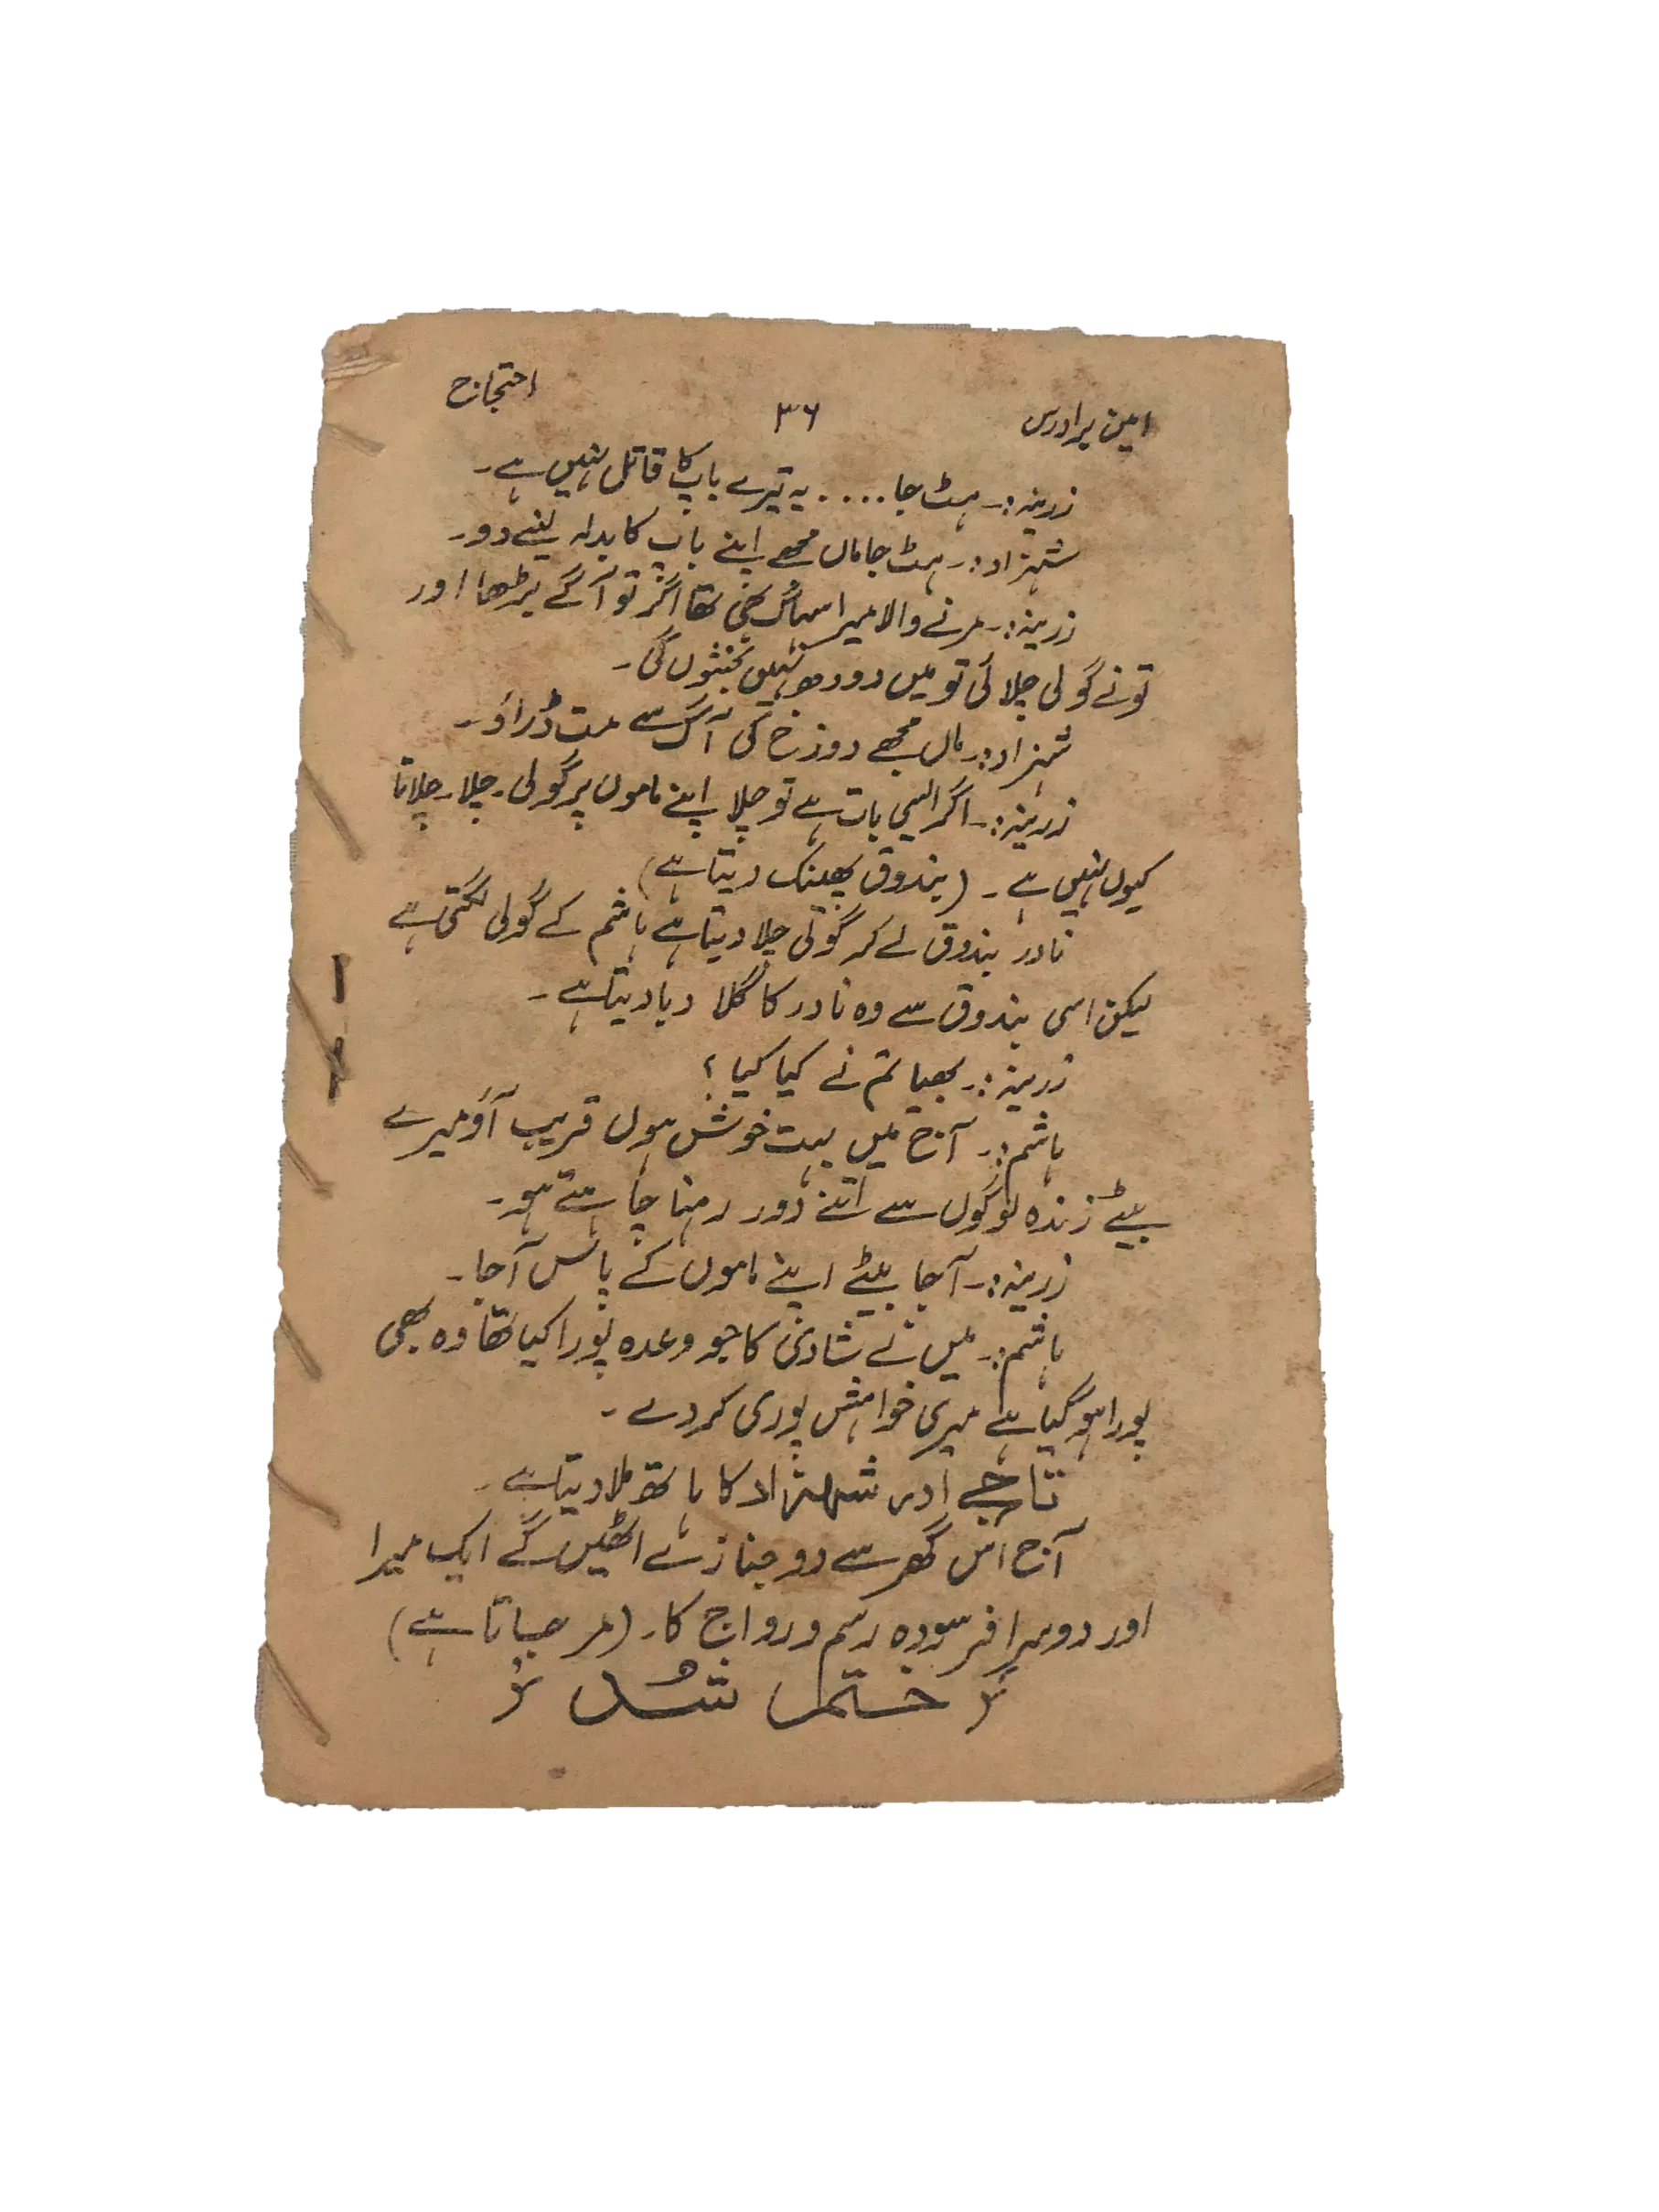 امین برادرس ۳۶ احتجاج
زرینہ:۔ ہٹ جا .... یہ تیرے باپ کا قاتل نہیں ہے۔
شہزاد:۔ ہٹ جا ماں مجھے اپنے باپ کا بدلہ لینے دو۔
زرینہ:۔ مرنے والا میرا سہاگ بھی تھا اگر تو آگے بڑھا اور
تونے گولی چلائی تو میں دودھ نہیں بخشوں گی۔
شہزاد:۔ ماں مجھے دوزخ کی آگ سے مت ڈراؤ۔
زرینہ:۔ اگر ایسی بات ہے تو چلا اپنے ماموں پر گولی۔ چلا۔ چلاتا
کیوں نہیں ہے۔ (بندوق پھینک دیتا ہے)
نادر بندوق لے کر گولی چلا دیتا ہے ہاشم کے گولی لگتی ہے
لیکن اسی بندوق سے وہ نادر کا گلا دبا دیتا ہے۔
زرینہ:۔ بھیا تم نے کیا کیا؟
ہاشم:۔ آج میں بہت خوش ہوں قریب آؤ میرے
بیٹے زندہ لوگوں سے اتنے دور رہنا چاہتے ہو۔
زرینہ:۔ آجا بیٹے اپنے ماموں کے پاس آجا۔
ہاشم:۔ میں نے شادی کا جو وعدہ پورا کیا تھا وہ بھی
پورا ہوگیا ہے میری خواہش پوری کردے۔
تاجے اور شہزاد کا ہاتھ ملا دیتا ہے۔
آج اس گھر سے دو جنازے اٹھیں گے ایک میرا
اور دوسرا فرسودہ رسم و رواج کا۔ (مر جاتا ہے)
ختم شُد